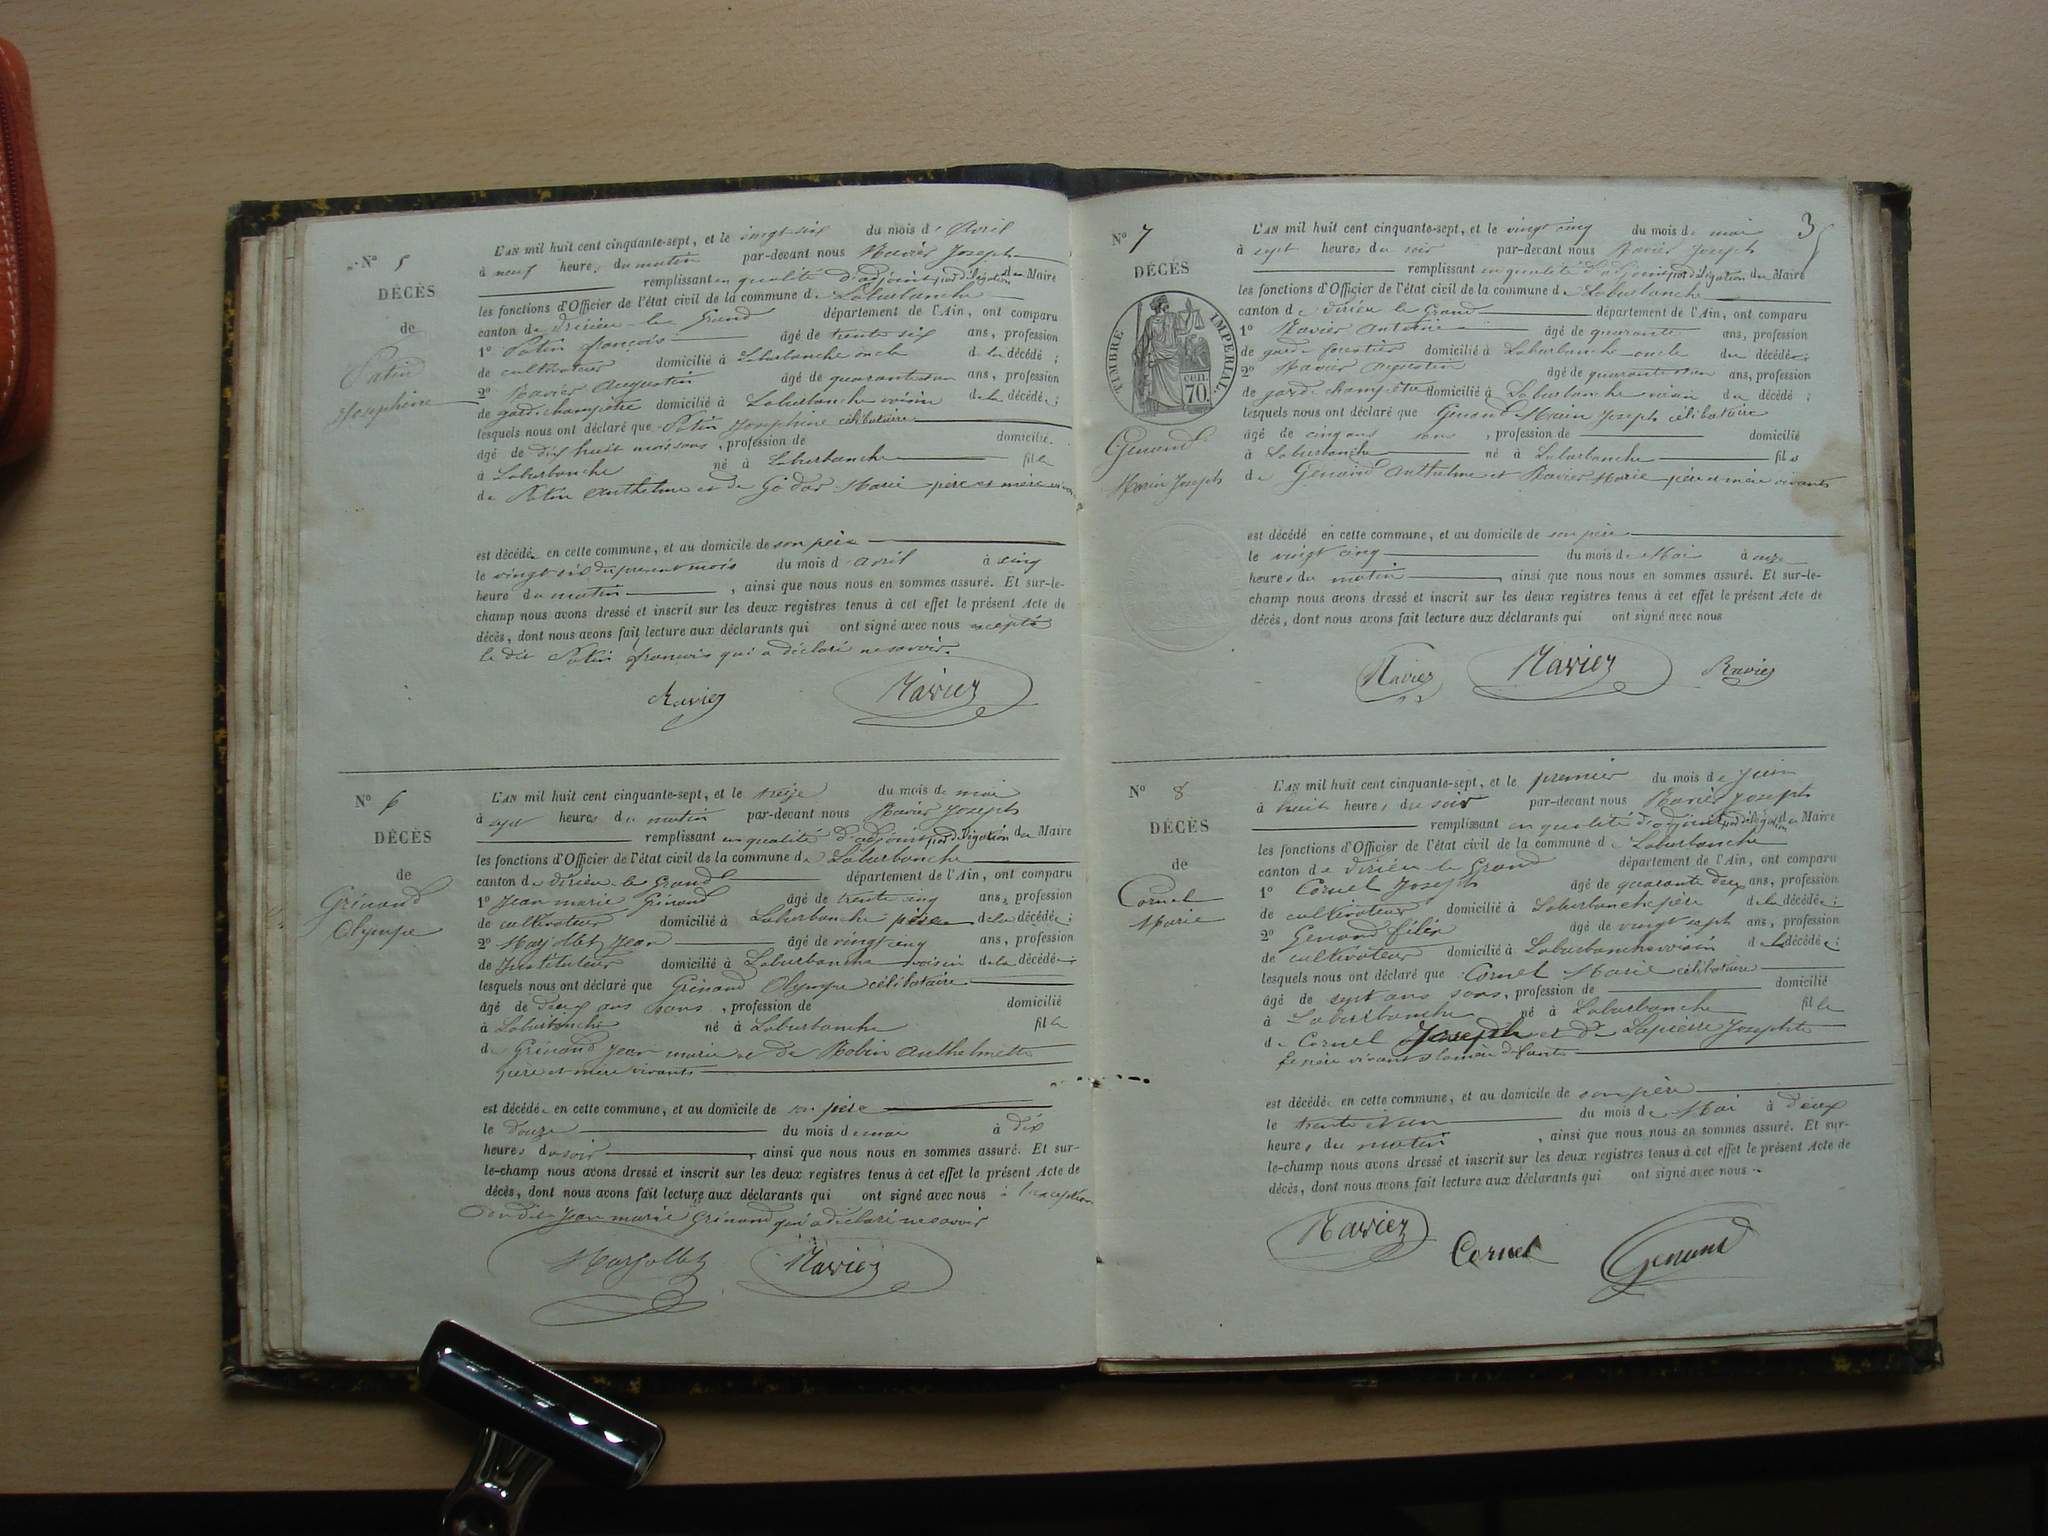 N° 5
DÉCÈS
de
Patin
Josephine
L'AN mil huit cent cinquante-sept, et le vingt six du mois d'Avril
à neuf heures du matin par-devant nous Ravier Joseph
remplissant en qualité d'adjoint par délégation du Maire
les fonctions d'Officier de l'état civil de la commune de Laburbanche
canton de Virieu-le-Grand département de l'Ain, ont comparu
1° Patin françois âgé de trente six ans, profession
de cultivateur domicilié à Laburbanche oncle de la décédé ;
2° Ravier Augustin âgé de quarante ans, profession
de garde champêtre domicilié à Laburbanche voisin de la décédée ;
lesquels nous ont déclaré que Patin Josephine célibataire
âgé de dix huit mois sans , profession de domicilié
à Laburbanche né à Laburbanche fille
de Patin Anthelme et de Godar Marie père et mère
est décédé en cette commune, et au domicile de son père
le vingt six du present mois du mois d'avril à cinq
heure du matin , ainsi que nous nous en sommes assuré. Et sur-le-
champ nous avons dressé et inscrit sur les deux registres tenus à cet effet le présent Acte de
décès, dont nous avons fait lecture aux déclarants qui ont signé avec nous excepté
le dit Patin françois qui a déclaré ne savoir.
Ravier Ravier
N° 6
DÉCÈS
de
Grinand
Olympe
L'AN mil huit cent cinquante-sept, et le treize du mois de mai
à sept heures du matin par-devant nous Ravier Joseph
remplissant en qualité d'adjoint par délégation du Maire
les fonctions d'Officier de l'état civil de la commune de Laburbanche
canton de Virieu-le-Grand département de l'Ain, ont comparu
1° Jean marie Grinand âgé de trente cinq ans, profession
de cultivateur domicilié à Laburbanche père de la décédée ;
2° Marjollet Jean âgé de vingt cinq ans, profession
de Instituteur domicilié à Laburbanche voisin de la décédée ;
lesquels nous ont déclaré que Grinand Olympe célibataire
âgé de deux ans sans , profession de domicilié
à Laburbanche né à Laburbanche fille
de Grinand Jean marie et de Robin Anthelmette
père et mère vivants
est décédé en cette commune, et au domicile de son père
le douze du mois de mai à dix
heures du soir , ainsi que nous nous en sommes assuré. Et sur-
le-champ nous avons dressé et inscrit sur les deux registres tenus à cet effet le présent Acte de
décès, dont nous avons fait lecture aux déclarants qui ont signé avec nous à l'exception
du dit Jean marie Grinand qui a déclaré ne savoir
Marjollet Ravier
3
N° 7
DÉCÈS
TIMBRE IMPERIAL
cen.
70.
Genand
Marin Joseph
L'AN mil huit cent cinquante-sept, et le vingt cinq du mois de mai
à sept heures du soir par-devant nous Ravier Joseph
remplissant en qualité d'adjoint par délégation du Maire
les fonctions d'Officier de l'état civil de la commune de Laburbanche
canton de Virieu le Grand département de l'Ain, ont comparu
1° Ravier Antoine âgé de quarante ans, profession
de garde forestier domicilié à Laburbanche oncle du décédé ;
2° Ravier Augustin âgé de quarante ans, profession
de garde champêtre domicilié à Laburbanche voisin du décédé ;
lesquels nous ont déclaré que Genand Marin Joseph célibataire
âgé de cinq ans sans , profession de domicilié
à Laburbanche né à Laburbanche fils
de Genand Anthelme et Ravier Marie père et mère vivants
est décédé en cette commune, et au domicile de son père
le vingt cinq du mois de Mai à onze
heures du matin , ainsi que nous nous en sommes assuré. Et sur-le-
champ nous avons dressé et inscrit sur les deux registres tenus à cet effet le présent Acte de
décès, dont nous avons fait lecture aux déclarants qui ont signé avec nous
Ravier Ravier Ravier
N° 8
DÉCÈS
de
Cornet
Marie
L'AN mil huit cent cinquante-sept, et le premier du mois de Juin
à huit heures du soir par-devant nous Ravier Joseph
remplissant en qualité d'adjoint par délégation du Maire
les fonctions d'Officier de l'état civil de la commune de Laburbanche
canton de Virieu-le-Grand département de l'Ain, ont comparu
1° Cornet Joseph âgé de quarante deux ans, profession
de cultivateur domicilié à Laburbanche père de la décédée ;
2° Genand félix âgé de vingt sept ans, profession
de cultivateur domicilié à Laburbanche voisin de la décédée ;
lesquels nous ont déclaré que Cornet Marie célibataire
âgé de sept ans sans, profession de domicilié
à Laburbanche né à Laburbanche fille
de Cornet Joseph et de Lapierre Josephte
le père vivant la mère défunte
est décédée en cette commune, et au domicile de son père
le trente et un du mois de Mai à deux
heures du matin , ainsi que nous nous en sommes assuré. Et sur-
le-champ nous avons dressé et inscrit sur les deux registres tenus à cet effet le présent Acte de
décès, dont nous avons fait lecture aux déclarants qui ont signé avec nous
Ravier Cornet Genand